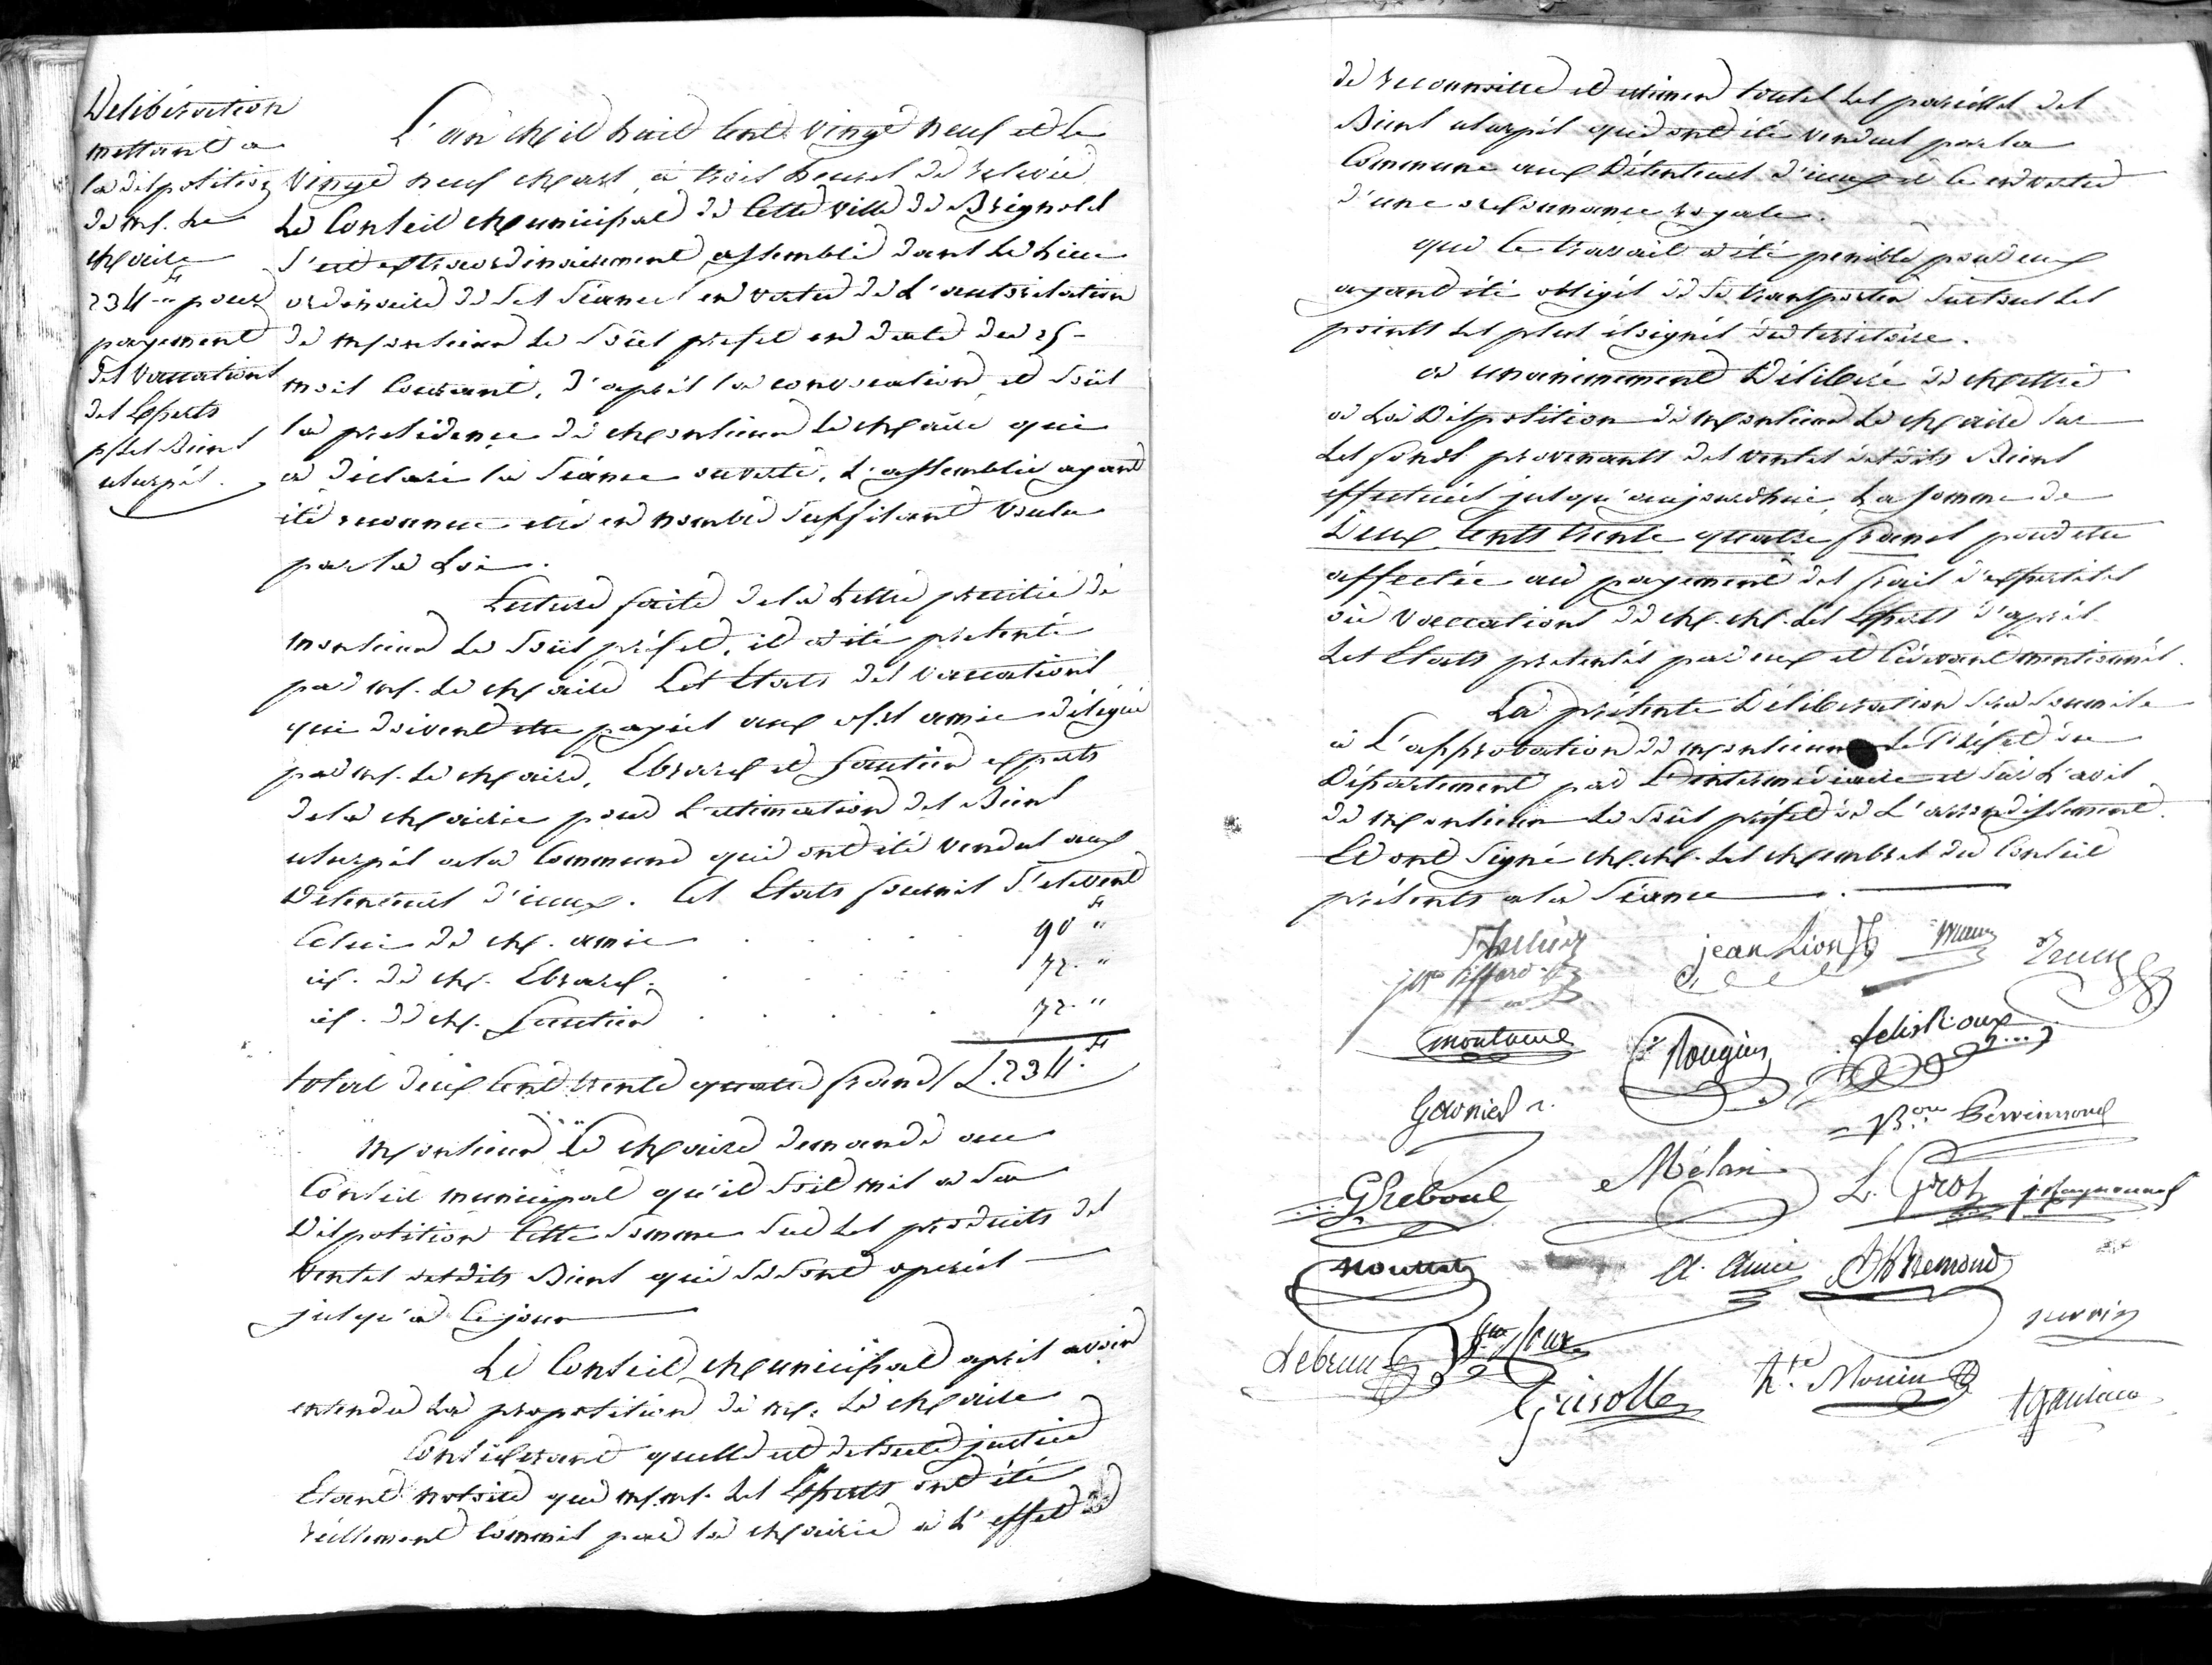 Délibération
mettant a
la disposition
de Mr. Le
Maire
234 f " pour
payement
des vaccations
des Experts
p/ les Biens
usurpés.
L'an Mil huit Cent vingt neuf et le
vingt neuf Mars, à trois heures de relevée
Le Conseil Municipal de Cette ville de Brignoles
s'est extraordinairement assemblé dans le Lieu
ordinaire de ses séances en vertu de L'autorisation
de Monsieur Le sous prefet en date du 25
mois Courant, d'après la convocation et sous
la presidence de Monsieur Le Maire qui
a déclaré la séance ouverte, L'assemblée ayant
été reconnue etre en nombre suffisant voulu
par la Loi.
Lecture faite de la Lettre precitée de
Monsieur Le sous préfet, il a été presenté
par Mr. Le Maire Les Etats des vaccations
qui doivent etre payées aux Srs. amic délégué
par Mr. Le Maire, Ebrard et Gautier experts
de la Mairie pour L'estimation des Biens
usurpés a la Commune qui ont été vendus aux
Détenteurs d'iceux. Ces Etats fournis s'elevent
Celui de M. amic . . . . . 90 f "
id. de M. Ebrard. . . . . 72. "
id. de M. Gautier . . . . . 72. "
total deux Cent trente quatre francs / L. 234. f
Monsieur Le Maire demande au
Conseil municipal qu'il soit mis a sa
Disposition Cette somme sur Les produits des
ventes desdits Biens qui se sont operées
jusqu'a Ce jour
Le Conseil Municipal après avoir
entendu La proposition de Mr. Le Maire
Considerant quelle est de toute justice
Etant notoire que M.M. Les Experts ont été
réellement Commis par la Mairie à L'effet de
de reconnoitre et estimer toutes Les parcelles des
Biens usurpés qui ont été vendues par la
Commune aux Détenteurs d'iceux et Ce en vertu
d'une ordonnance royale.
que Ce travail a été penible pour eux
ayant été obligés de se transporter sur tous Les
points Les plus éloignés du territoire.
a unanimement Délibéré de Mettre
a La Disposition de Monsieur Le Maire sur
Les fonds provenants des ventes desdits Biens
effectuées jusqu'aujourdhui, La somme de
Deux Cents trente quatre francs pour etre
affectée au payement des frais d'expertises
ou vaccations de M. M. Les Experts d'après
Les Etats presentés par eux et Cidevant mentionnés.
La présente Délibération sera soumise
à L'approbation de Monsieur Le Préfet du
Département par L'intermédiaire et sur L'avis
de Monsieur Le sous préfet de L'arrondissement.
Et ont signé M.M. Les Membres du Conseil
présents a la séance.
jean Lion
Piffard
Montaud
Rougier
felix Roux
Garnier
Perreimond
G Reboul
Mélan
L. Gros
j. Raynouard
Moutte
A. Amic
Bremond
Lebrun
Roux
Grisolle
Hte. Monier